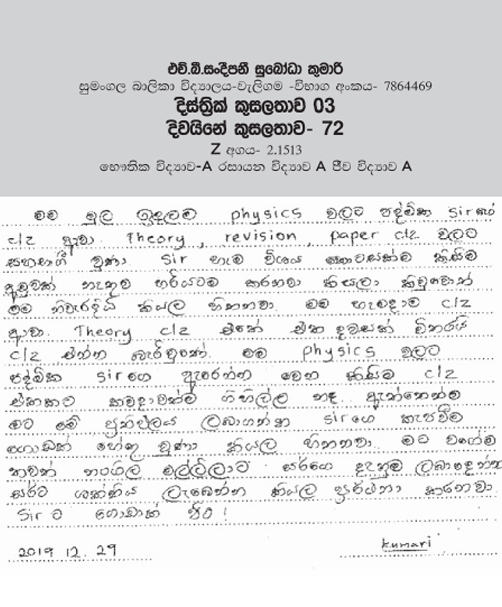 එච්.බී.සංදීපනී සුබෝධා කුමාරි
සුමංගල බාලිකා විද්‍යාලය-වැලිගම -විභාග අංකය- 7864469
දිස්ත්‍රික් කුසලතාව 03
දිවයිනේ කුසලතාව- 72
Z අගය- 2.1513
භෞතික විද්‍යාව-A රසායන විද්‍යාව A ජීව විද්‍යාව A
මම මුල ඉදලම physics වලට පද්මික sirගෙ
clz ආවා. Theory, revision, paper clz වලට
සහභාගී වුණා Sir හැම විශය කොටසක්ම කිසිම
අඩුවක් නැතුව හරියටම කරනවා කියලා කිව්වොත්
මම නිවැරදියි කියල හිතනවා. මම හැමදාම clz
ආවා. Theory clz එකේ එක දවසක් විතරයි
clz එන්න බැරිවුණේ. මම physics වලට
පද්මික sirගෙ ඇරෙන්න වෙන කිසිම clz
එකකට කවදාවත්ම ගිහිල්ල නෑ. ඇත්තෙන්ම
මට මේ ප්‍රතිඵලය ලබාගන්න sirගෙ කැපවීම
ගොඩක් හේතු වුණා කියල හිතනවා. මට වගේම
තවත් නංගිල මල්ලිලාට සර්ගෙ දැනුම ලබාදෙන්න
සර්ට ශක්තිය ලැබෙන්න කියල ප්‍රාර්ථනා කරනවා.
Sir ට ගොඩාක් පිං!
2019 12. 29
kumari